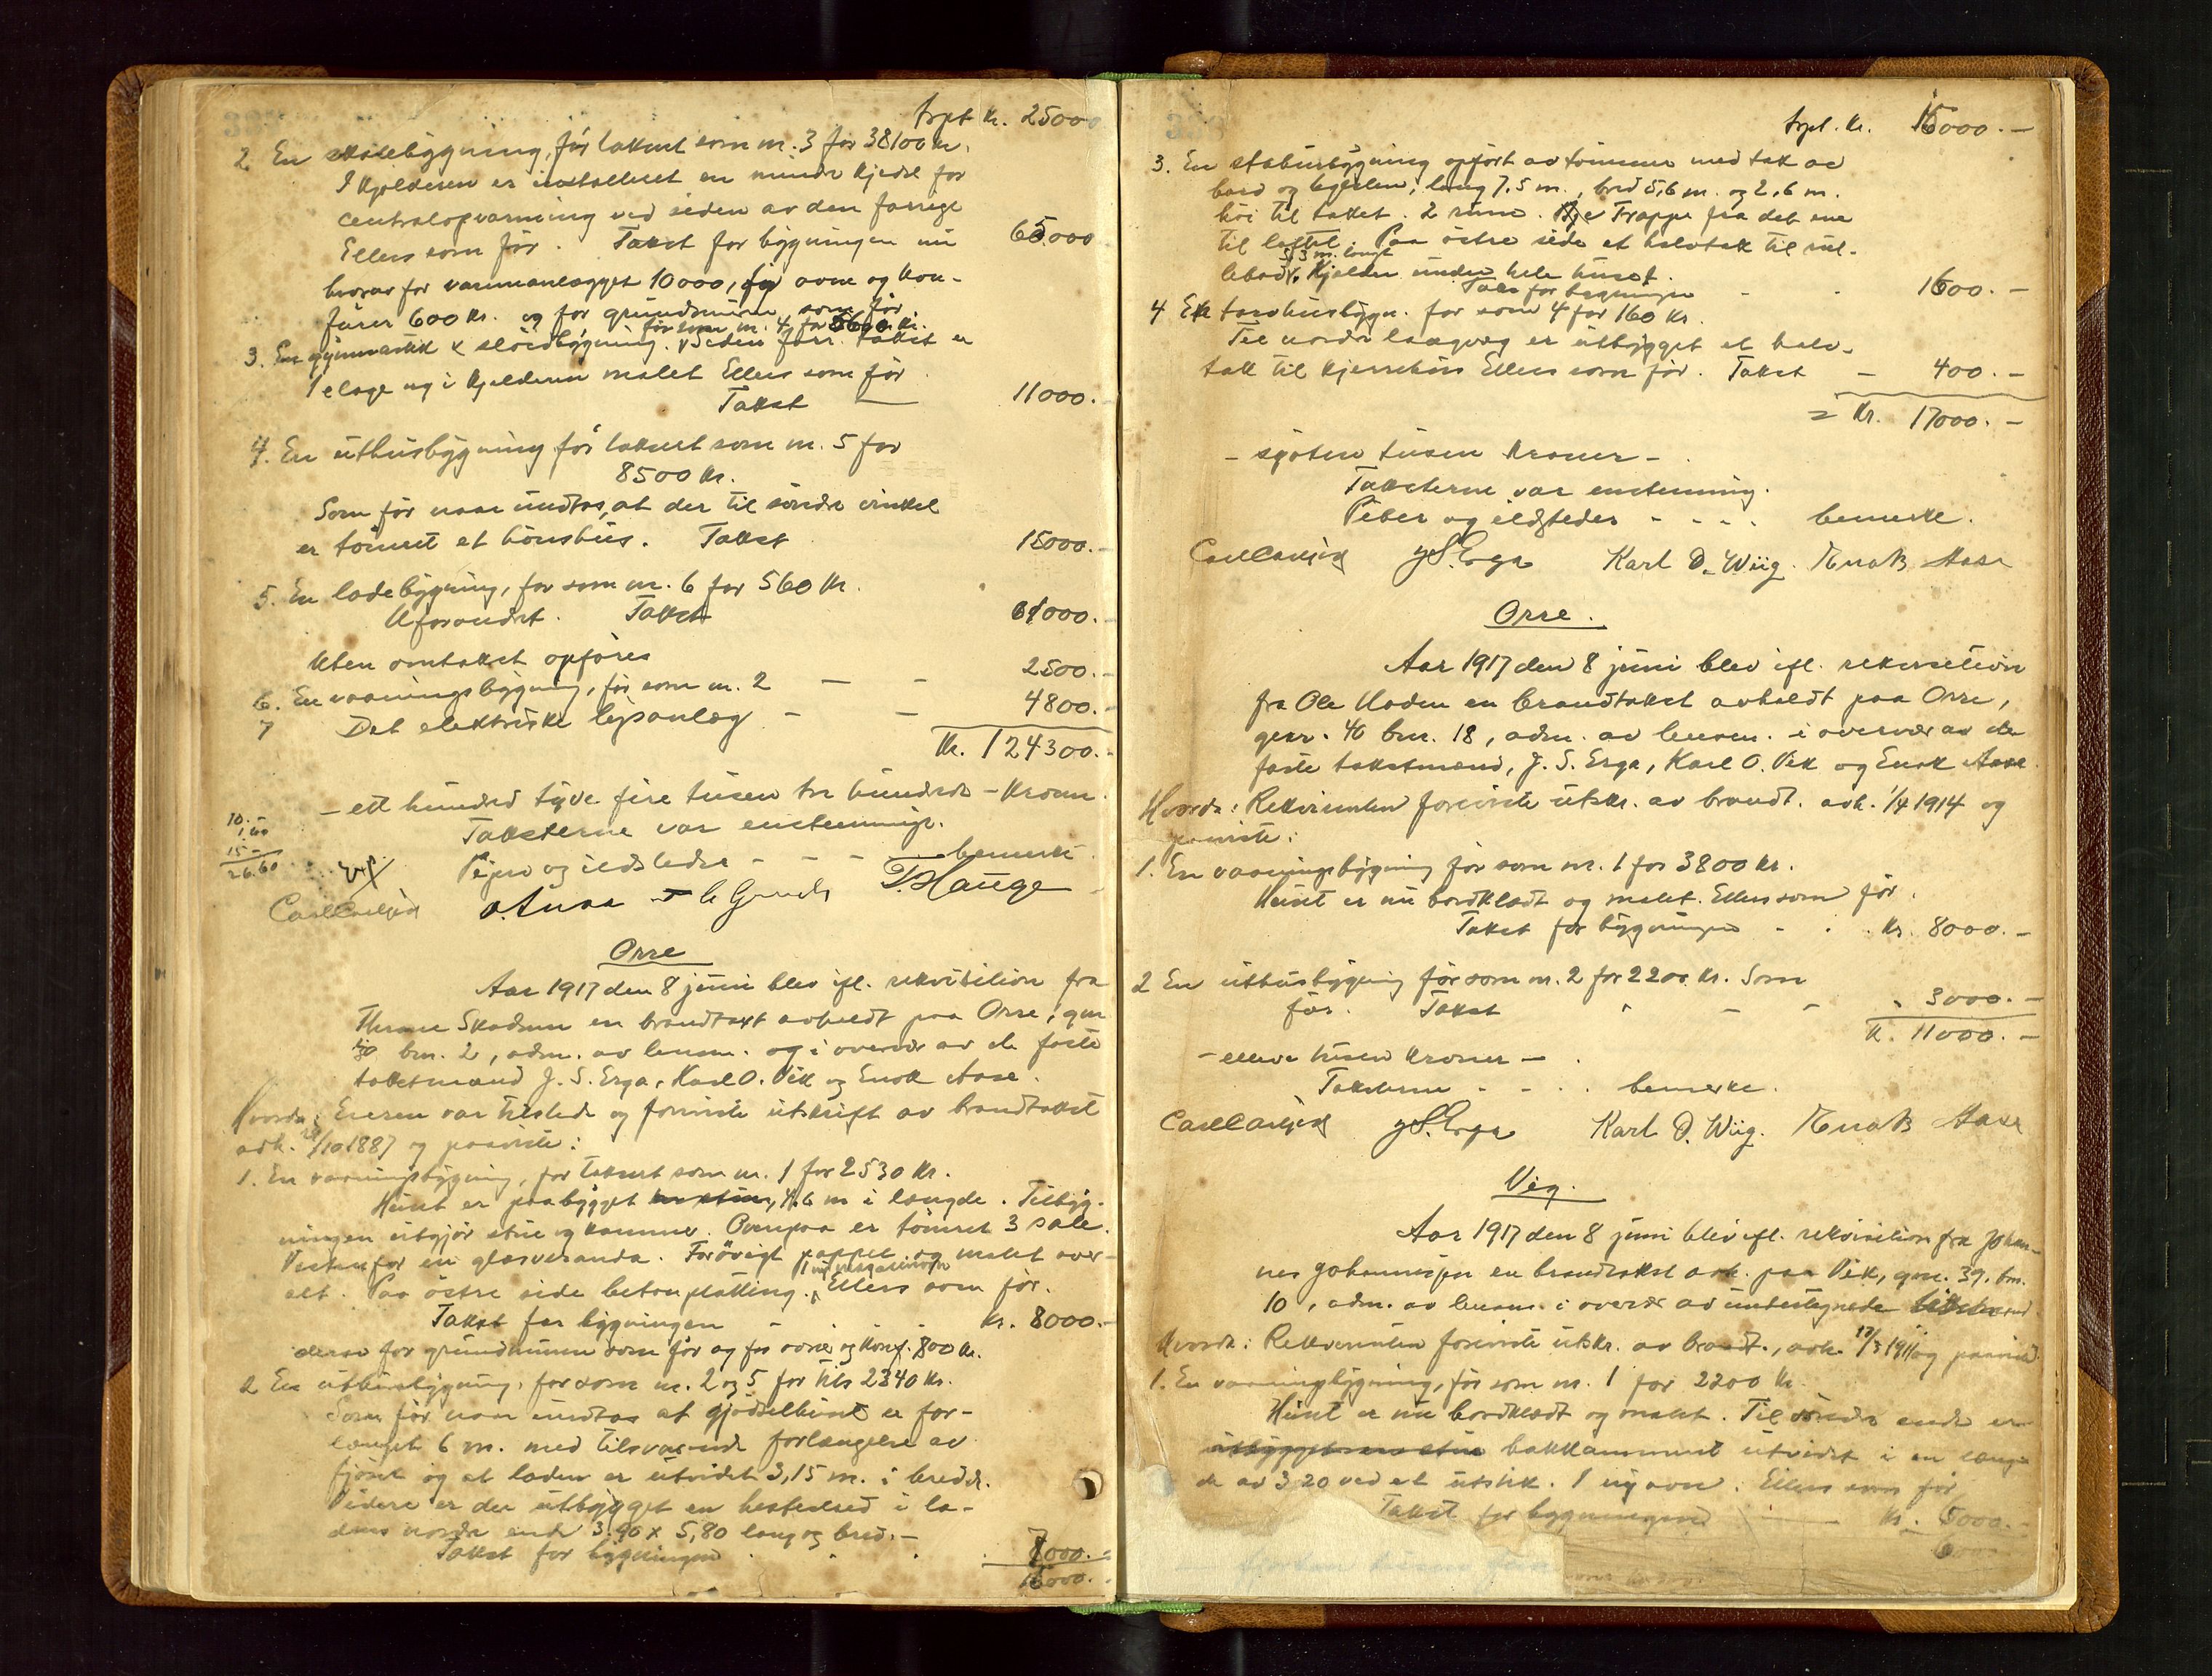 Trpt Kr. 25000
2. En skolebygning, før takseret som nr. 3 for 38100 Kr.
I kjelderen er installeret en mindre kjedel for
centralopvarming ved siden av den forrige
Ellers som før. Takst for bygningen nu 65000
herav for varmeanlægget 10000, for ovne og kom-
fürer 600 Kr. og for grundmuren som før.
3. En gymnastik & sløidbygning før som nr. 4 for 5600 Kr. Siden forr. takst er
1 etage og i kjelderen malet Ellers som før.
Takst — 11000.-
4. En uthusbygning før takseret som nr. 5 for
8500 Kr.
Som før naar undtas, at der til søndre vinkel
er tømret et hønshus. Takst 15000.-
5. En ladebygning, før som nr. 6 for 560 Kr.
Uforandret. Takst 1000.-
Uten omtakst opføres
6. En vaaningsbygning, før som nr. 2 — - 2500.-
7 Det elektriske lysanlæg - — 4800.-
Kr. 124300.-
- ett hundred tyve fire tusen tre hundrede - Kroner.
Taksterne var enstemmige.
10.-
1.60
15 -
26.60
Piper og ildsteder - - - bemerke.
CarlCarlsen O. Anda T. Hauge
Orre
Aar 1917 den 8 juni blev ifl. rekvisition fra
Skadsem en brandtaxt avholdt paa Orre, gnr
40 brn. 2, adm. av lensm. og i overvær av de faste
takstmænd J. S. Erga, Karl O. Vik og Enok Aase.
Hvorda: Eieren var tilstede og foreviste utskrift av brandtakst
avh. /10 1887 og paaviste:
1. En vaaningsbygning, før takseret som nr. 1 for 2530 Kr.
Huset er paabygget en stue, 4,6 m i længde. Tilbyg-
ningen utgjør stue og kammer. Ovenpaa er tømret 3 sale.
Vestenfor en glasveranda. Forøvrigt pappet og malet over-
alt. Paa østre side betonplatting. 1 ny magasinovn Ellers som før.
Takst for bygningen - - Kr. 8000.-
derav for grundmuren som før og for ovne og komf. 800 Kr.
2 En uthusbygning, før som nr. 2 og 5 for tils 2340 Kr.
Som før naar undtas at gjødselhuset er for-
længet 6 m. med tilsvarende forlængelse av
fjøset og at laden er utvidet 3,15 m. i bredde.
Videre er der utbygget en hestested i la-
dens nordre ende 3,90 x 5,80 lang og bred.-
Takst for bygningen . . . 7000.-
15000.-
Trpt. Kr. 15000.-
3. En stabursbygning opført av tømmer med tak av
bord og teglsten; lang 7,5 m., bred 5,6 m. og 2,6 m.
høi til taket. 2 rum. Trappe fra det ene
til loftet. Paa østre side et halvtak til rul-
lebod 5,3 m. langt. Kjelder under hele huset.
Takst for bygningen - - 1600.-
4 En torvhusbygn. før som 4 for 160 Kr.
Til nordre langvæg er utbygget et halv-
tak til kjerrehus Ellers som før. Takst - 400.-
= Kr. 17000.-
- sytten tusen Kroner -
Taksterne var enstemmig.
Piber og ildsteder - - - - bemerke.
CarlCarlsen J S. Erga Karl O. Wiig. Enok Aase
Orre.
Aar 1917 den 8 juni blev ifl. rekvisition
fra Ole Uaden en brandtakst avholdt paa Orre,
gnr. 40 brn. 18, adm. av lensm. i overvær av de
faste takstmænd, J. S. Erga, Karl O. Vik og Enok Aase.
Hvorda: Rekvirenten foreviste utskr. av brandt. avh. 1/4 1914 og
paaviste:
1. En vaaningsbygning før som nr. 1 for 3800 Kr.
Huset er nu bordklædt og malet. Ellers som før.
Takst for bygningen - . . Kr. 8000.-
2 En uthusbygning før som nr. 2 for 2200 Kr. Som
før. Takst - - - 3000.-
Kr. 11000.-
- elleve tusen Kroner -
Taksterne - - - - bemerke.
CarlCarlsen J S. Erga Karl O. Wiig. Enok Aase
Vig.
Aar 1917 den 8 juni blev ifl. rekvisition fra Johan-
nes Johannesen en brandtakst avh. paa Vik, gnr. 39, brn.
10, adm. av lensm. i overvær av undertegnede
Hvorda: Rekvirenten foreviste utskr. av brandt., avh. 17/3 1911 og paaviste
1. En vaaningsbygning, før som nr. 1 for 2200 Kr.
Huset er nu bordklædt og malet. Til søndre ende er
utbygget en stue bakkammeret utvidet i en læng-
de av 3 20 ved et utstik. 1 ny ovn. Ellers som før
Takst for bygningen — Kr. 5000.-